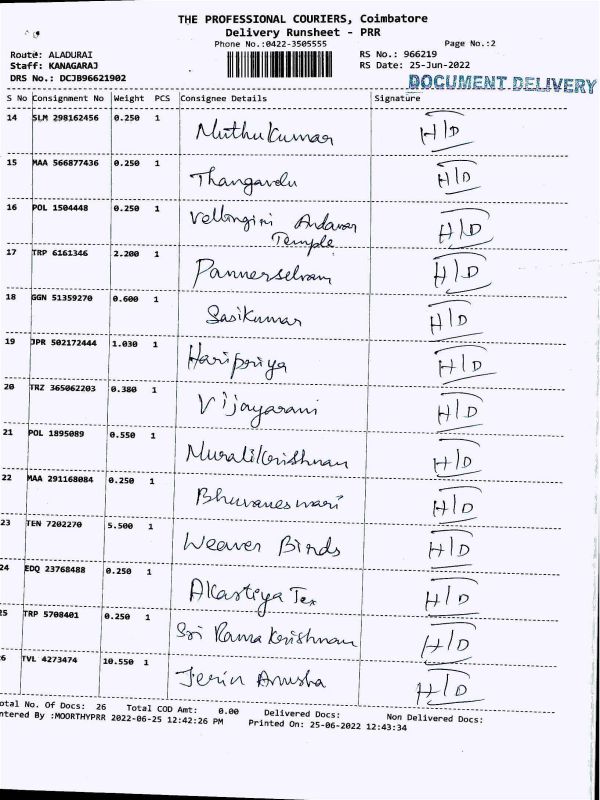 THE PROFESSIONAL COURIERS, Coimbatore
Delivery Runsheet - PRR
Phone No.:0422-3505555 Page No.:2
Route: ALADURAI RS No.: 966219
Staff: KANAGARAJ RS Date: 25-Jun-2022
DRS No.: DCJB96621902 DOCUMENT DELIVERY
S No Consignment No Weight PCS Consignee Details Signature
14 SLM 298162456 0.250 1 Muthukumar H/D
15 MAA 566877436 0.250 1 Thangavelu H/D
16 POL 1504448 0.250 1 Vellingiri Andavar H/D
Temple
17 TRP 6161346 2.200 1 Pannerselvam H/D
18 GGN 51359270 0.600 1 Sasikumar H/D
19 JPR 502172444 1.030 1 Haripriya H/D
20 TRZ 365062203 0.380 1 Vijayarani H/D
21 POL 1895089 0.550 1 Muralikrishnan H/D
22 MAA 291168084 0.250 1 Bhuvaneswari H/D
23 TEN 7202270 5.500 1 Weaver Birds H/D
24 EDQ 23768488 0.250 1 Tex H/D
25 TRP 5708401 0.250 1 Sri Rama Krishnan H/D
26 TVL 4273474 10.550 1 Jerin Anusha H/D
otal No. Of Docs: 26 Total COD Amt: 0.00 Delivered Docs: Non Delivered Docs:
ntered By :MOORTHYPRR 2022-06-25 12:42:26 PM Printed On: 25-06-2022 12:43:34